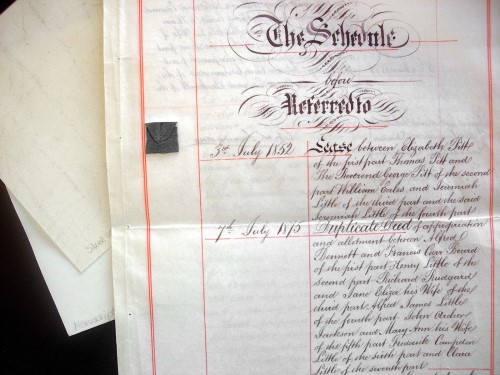 The Schedule
before
Referred to
3rd July 1852 Lease between Elizabeth Pitt
of the first part Thomas Pitt and
The Reverend George Pitt of the second
part William Eales and Jeremiah
Little of the third part and the said
Jeremiah Little of the fourth part
7th July 1875 Duplicate Deed of appropriation
and allotment between Alfred
Bennett and Francis Carr Beard
of the first part Henry Little of the
second part Richard Prudgard
and Jane Eliza his Wife of the
third part Alfred James Little
of the fourth part John
Jackson and Mary Ann his Wife
of the fifth part Frederick Campden
Little of the sixth part and Clara
Little of the seventh part